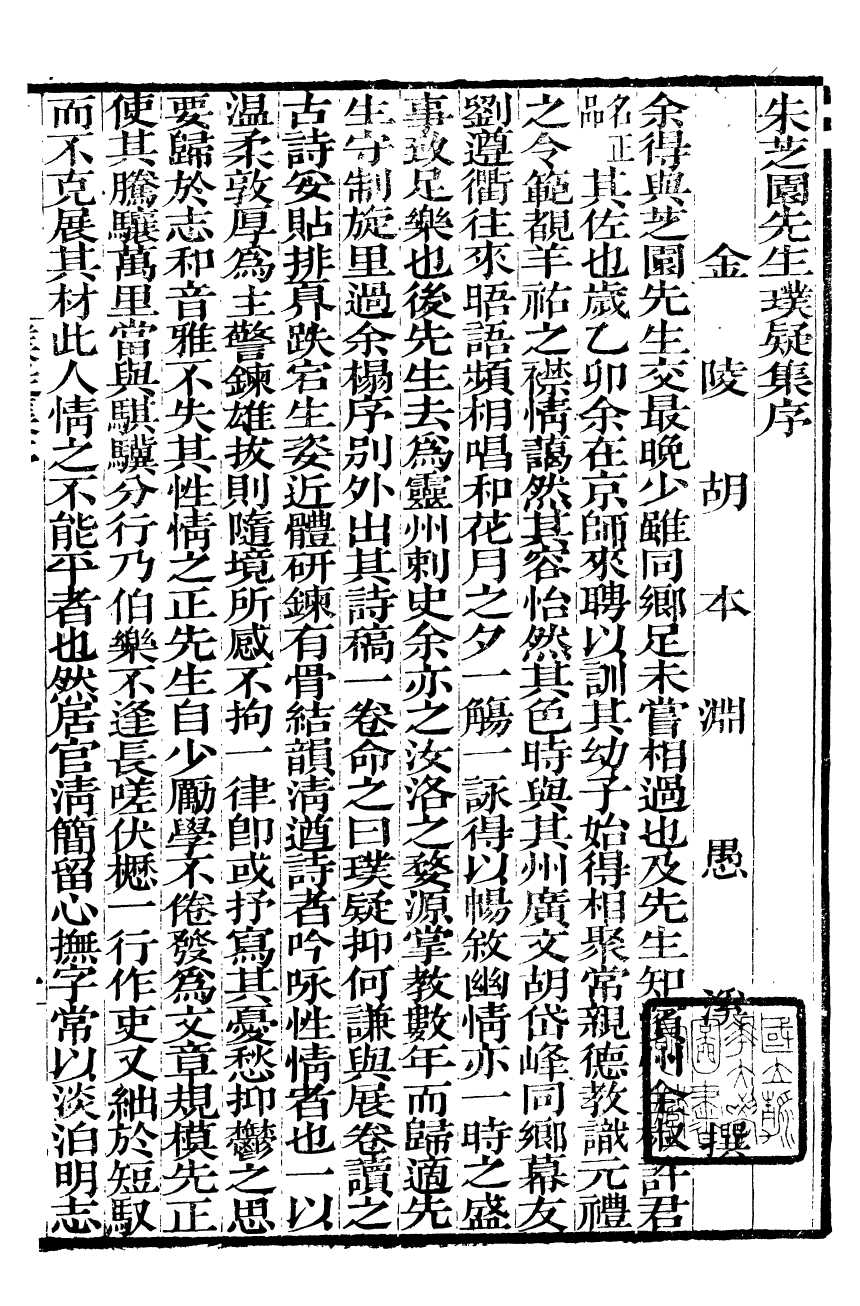 朱芝園先生璞疑集序
金陵胡本淵愚溪撰
余得與芝園先生交最晚少雖同鄉足未嘗相過也及先生知賓州余椒許君
名正品其佐也歲乙卯余在京師來聘以訓其幼子始得相聚常親德教識元禮
之令範覩羊祜之襟情藹然其容怡然其色時與其州廣文胡岱峰同鄉幕友
劉遵衢往來晤語頻相唱和花月之夕一觴一詠得以暢敘幽情亦一時之盛
事致足樂也後先生去為靈州刺史余亦之汝洛之婺源掌教數年而歸適先
生守制旋里過余榻序別外出其詩稿一卷命之曰璞疑抑何謙與展卷讀之
古詩妥貼排奡跌宕生姿近體研鍊有骨結韻淸遒詩者吟咏性情者也一以
温柔敦厚為主警鍊雄拔則隨境所感不拘一律卽或抒寫其憂愁抑鬱之思
要歸於志和音雅不失其性情之正先生自少勵學不倦發為文章規模先正
使其騰驤萬里當與騏驥分行乃伯樂不逢長嗟伏櫪一行作吏又絀於短馭
而不克展其材此人情之不能平者也然居官淸簡留心撫字常以淡泊明志